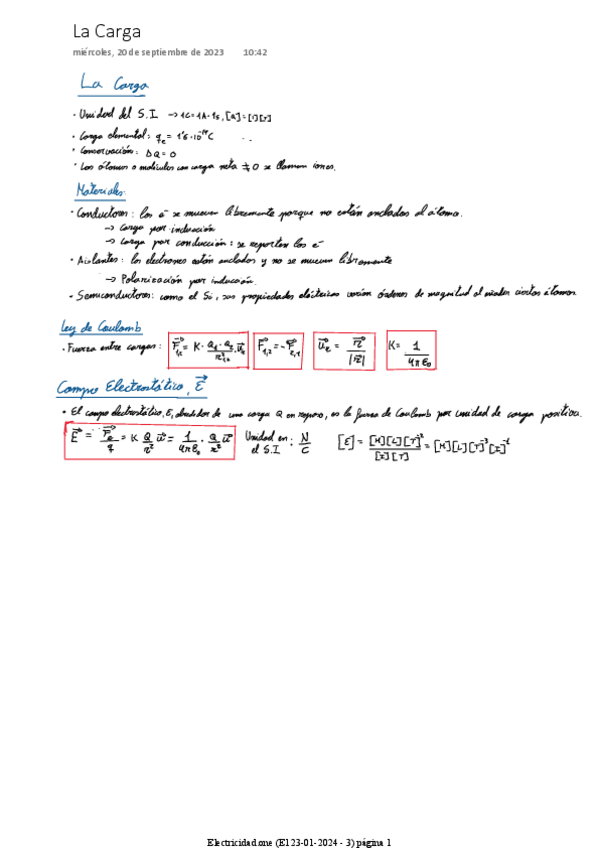 La Carga
miércoles, 20 de septiembre de 2023 10:42
La Carga
· Unidad del S.I → 1C=1A·1s, [Q]=[I][T]
· Carga elemental: qₑ = 1'6·10⁻¹⁹ C
· Conservación: ΔQ = 0
· Los átomos o moléculas con carga neta ≠ 0 se llaman iones.
Materiales
· Conductores: los e⁻ se mueven libremente porque no están anclados al átomo.
→ Carga por inducción
→ Carga por conducción: se reparten los e⁻
· Aislantes: los electrones están anclados y no se mueven libremente
→ Polarización por inducción.
· Semiconductores: como el Si, sus propiedades eléctricas varían órdenes de magnitud al añadir ciertos átomos.
Ley de Coulomb
· Fuerza entre cargas: F⃗₁,₂ = K · Q₁·Q₂/r²₁,₂ · u⃗ᵣ F⃗₁,₂ = -F⃗₂,₁ u⃗ᵣ = r⃗/|r⃗| K = 1/4πε₀
Campo Electrostático, E⃗
· El campo electrostático, E, alrededor de una carga Q en reposo, es la fuerza de Coulomb por unidad de carga positiva.
E⃗ = F⃗ₑ/q = K Q/r² u⃗ = 1/4πε₀ · Q/r² u⃗ Unidad en el S.I : N/C [E] = [M][L][T]⁻²/[I][T] = [M][L][T]⁻³[I]⁻¹
Electricidad.one (E123-01-2024 - 3) página 1